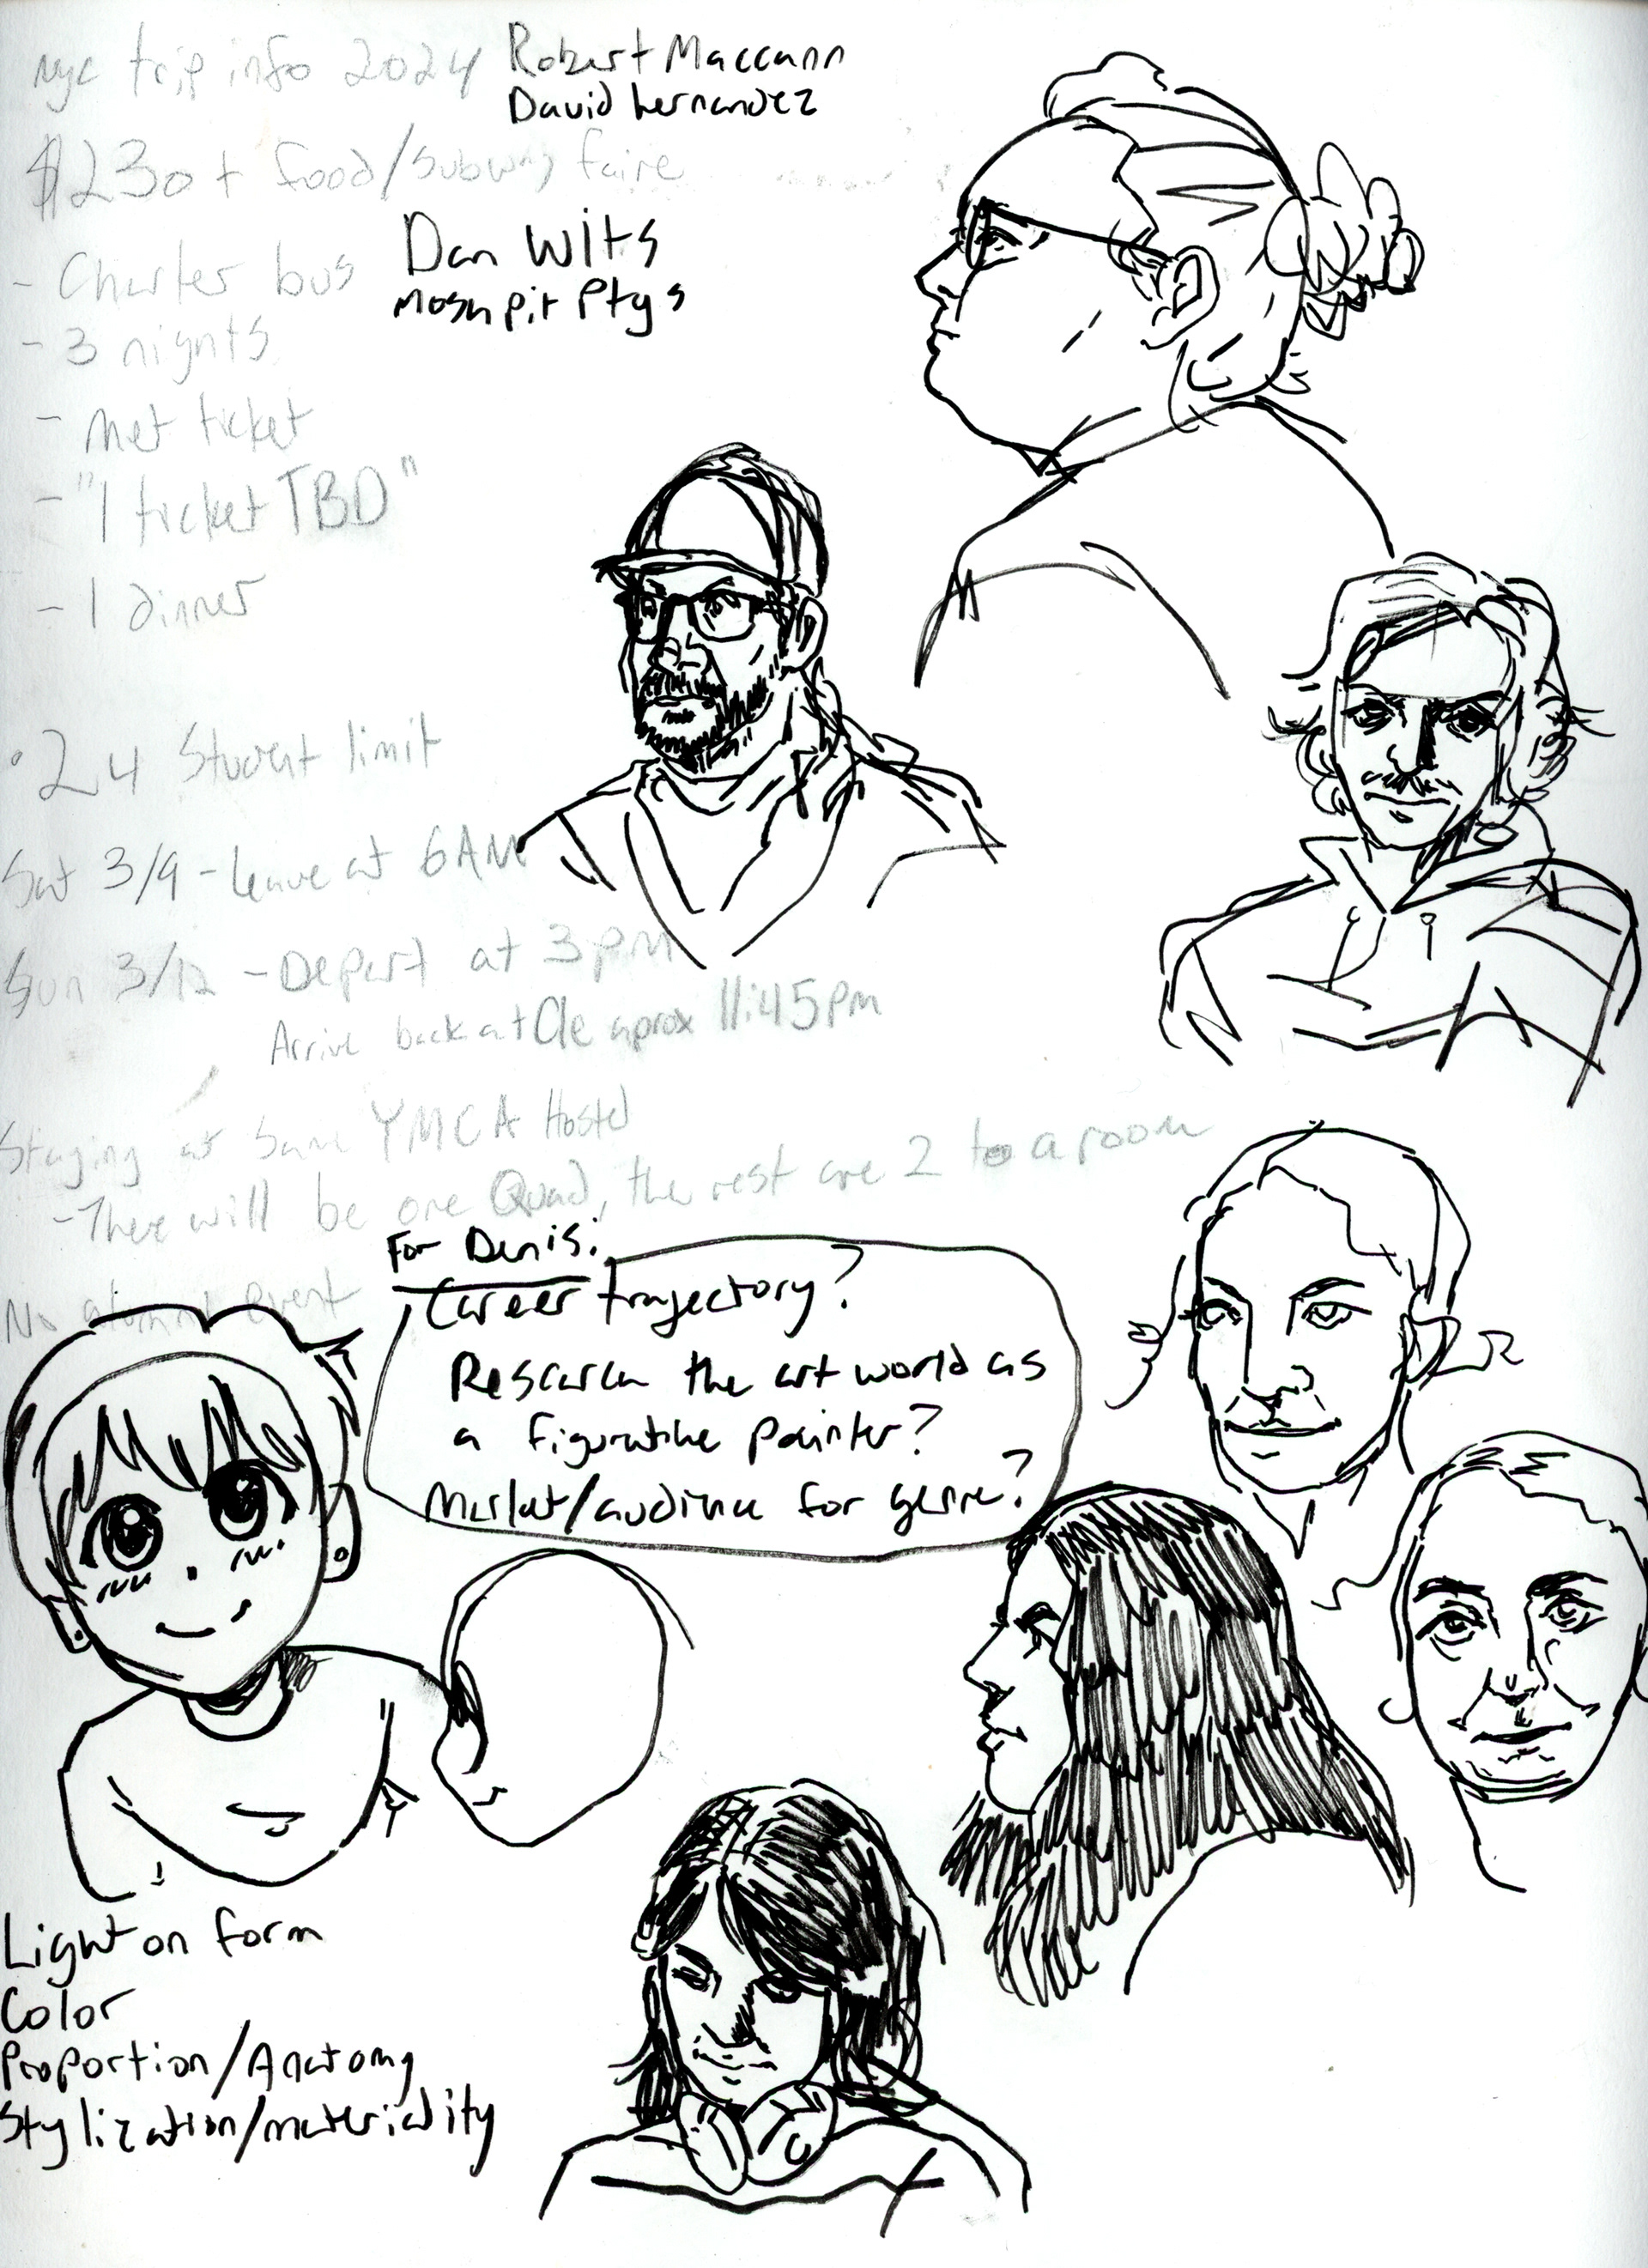 nyc trip info 2024
Robert Maccann
David hernandez
$230 + food/subway faire
Dan Wits
Moshpit Ptgs
- Charter bus
- 3 nights
- Met ticket
- "1 ticket TBD"
- 1 dinner
• 24 Student limit
Sat 3/9 - leave at 6AM
Sun 3/12 - Depart at 3pm
Arrive back at Cle aprox 11:45pm
Staying at Same YMCA Hostel
- There will be one Quad, the rest are 2 to a room
No alumni event
For Denis:
Career trajectory?
Research the art world as
a figurative painter?
Market/audience for genre?
Light on form
Color
Proportion/Anatomy
Stylization/materiality